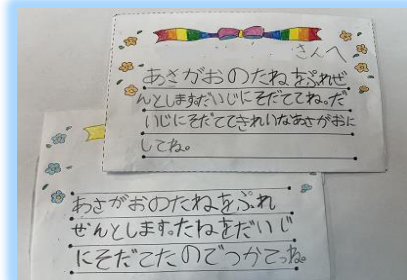 さんへ
あさがおのたねをぷれぜ
んとしますだいじにそだててね。だ
いじにそだててきれいなあさがおに
してね。
あさがおのたねをぷれ
ぜんとします。たねをだいじ
にそだてたのでつかてっね。